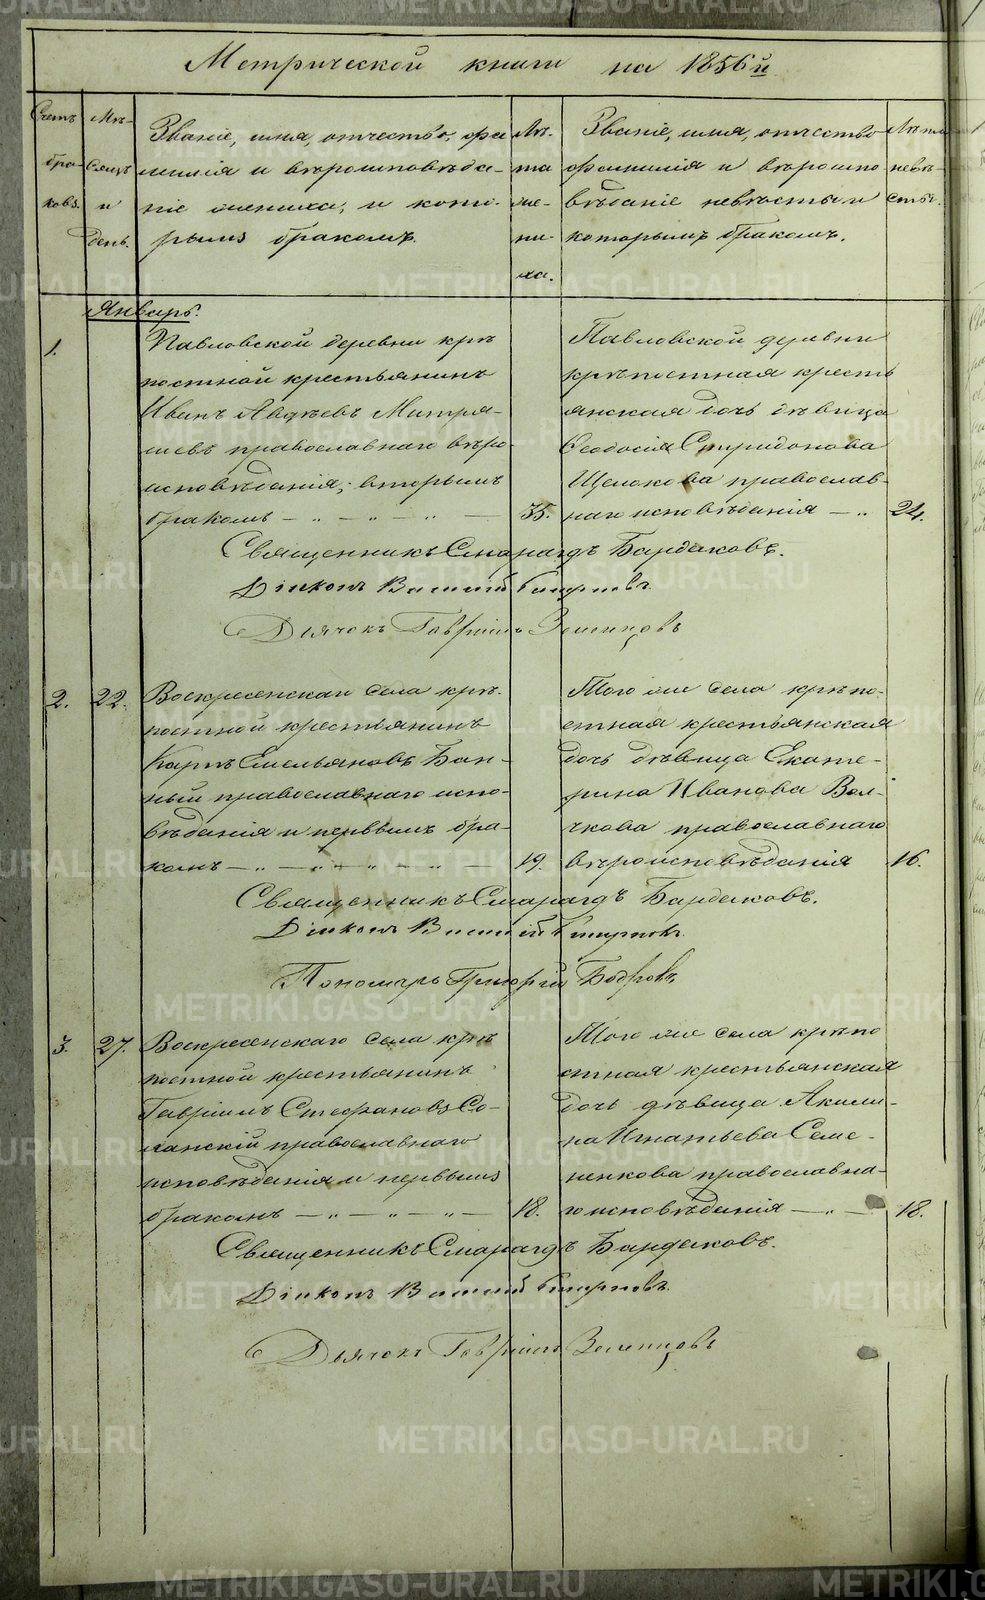 Метрической книги на 1856й
Счетъ браковъ.
Мѣсяцъ и день.
Званіе, имя, отчество, фа-
милія и вѣроисповѣда-
ніе жениха, и кото-
рымъ бракомъ.
Лѣта жениха.
Званіе, имя, отчество
фамилія и вѣроиспо-
вѣданіе невѣсты и
которымъ бракомъ.
Лѣта невѣсты.
Январь.
1.
Павловской деревни крѣ
постной крестьянинъ
Иванъ Авдѣевъ Митря-
шевъ православнаго вѣро
исповѣданія, вторымъ
бракомъ — „ — „ — „ — 35.
Павловской деревни
крѣпостная кресть
янская дочь дѣвица
Ѳеодосія Спиридонова
Щелокова православ-
наго исповѣданія — „ 24.
Священникъ Смарагдъ Бардаковъ.
Діаконъ Василій Смирновъ.
Дьячокъ Гавріилъ
2. 22.
Воскресенскаго села крѣ-
постной крестьянинъ
Карпъ Емельяновъ Бан-
ный православнаго испо-
вѣданія и первымъ бра-
комъ — „ — „ — „ — „ — 19.
Того же села крѣпо-
стная крестьянская
дочь дѣвица Екате-
рина Иванова Вол-
чкова православнаго
вѣроисповѣданія 16.
Священникъ Смарагдъ Бардаковъ.
Діаконъ Василій Смирновъ.
Пономарь Григорій Бодровъ
3. 27.
Воскресенскаго села крѣ
постной крестьянинъ
Гавріилъ Стефановъ Со-
ланскій православнаго
исповѣданія и первымъ
бракомъ — „ — „ — „ — 18.
Того же села крѣпо
стная крестьянская
дочь дѣвица Акили-
на Игнатьева Семе-
ненкова православна-
го исповѣданія — „ — 18.
Священникъ Смарагдъ Бардаковъ.
Діаконъ Василій Смирновъ.
Дьячокъ Гавріилъ
METRIKI.GASO-URAL.RU